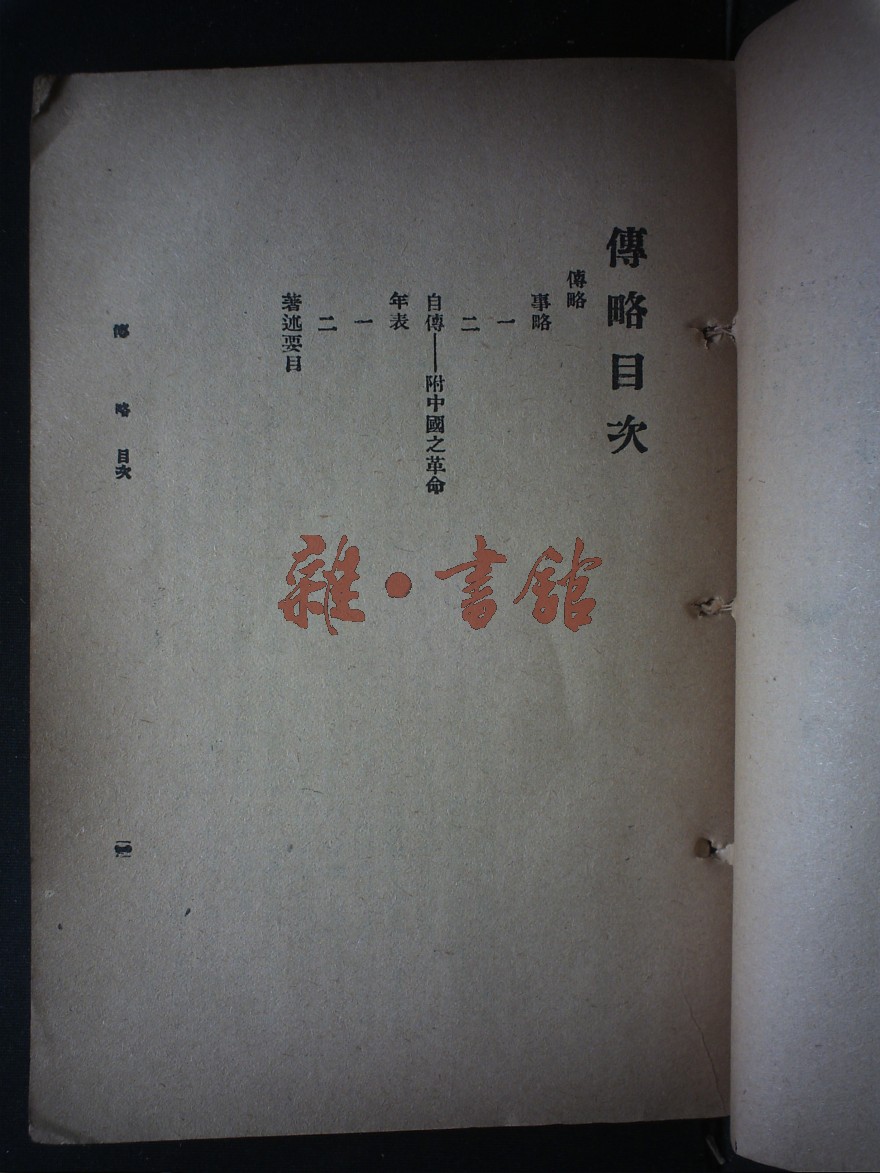 傳略目次
傳略
事略
一
二
自傳——附中國之革命
年表
一
二
著述要目
傳略 目次
雜·書館